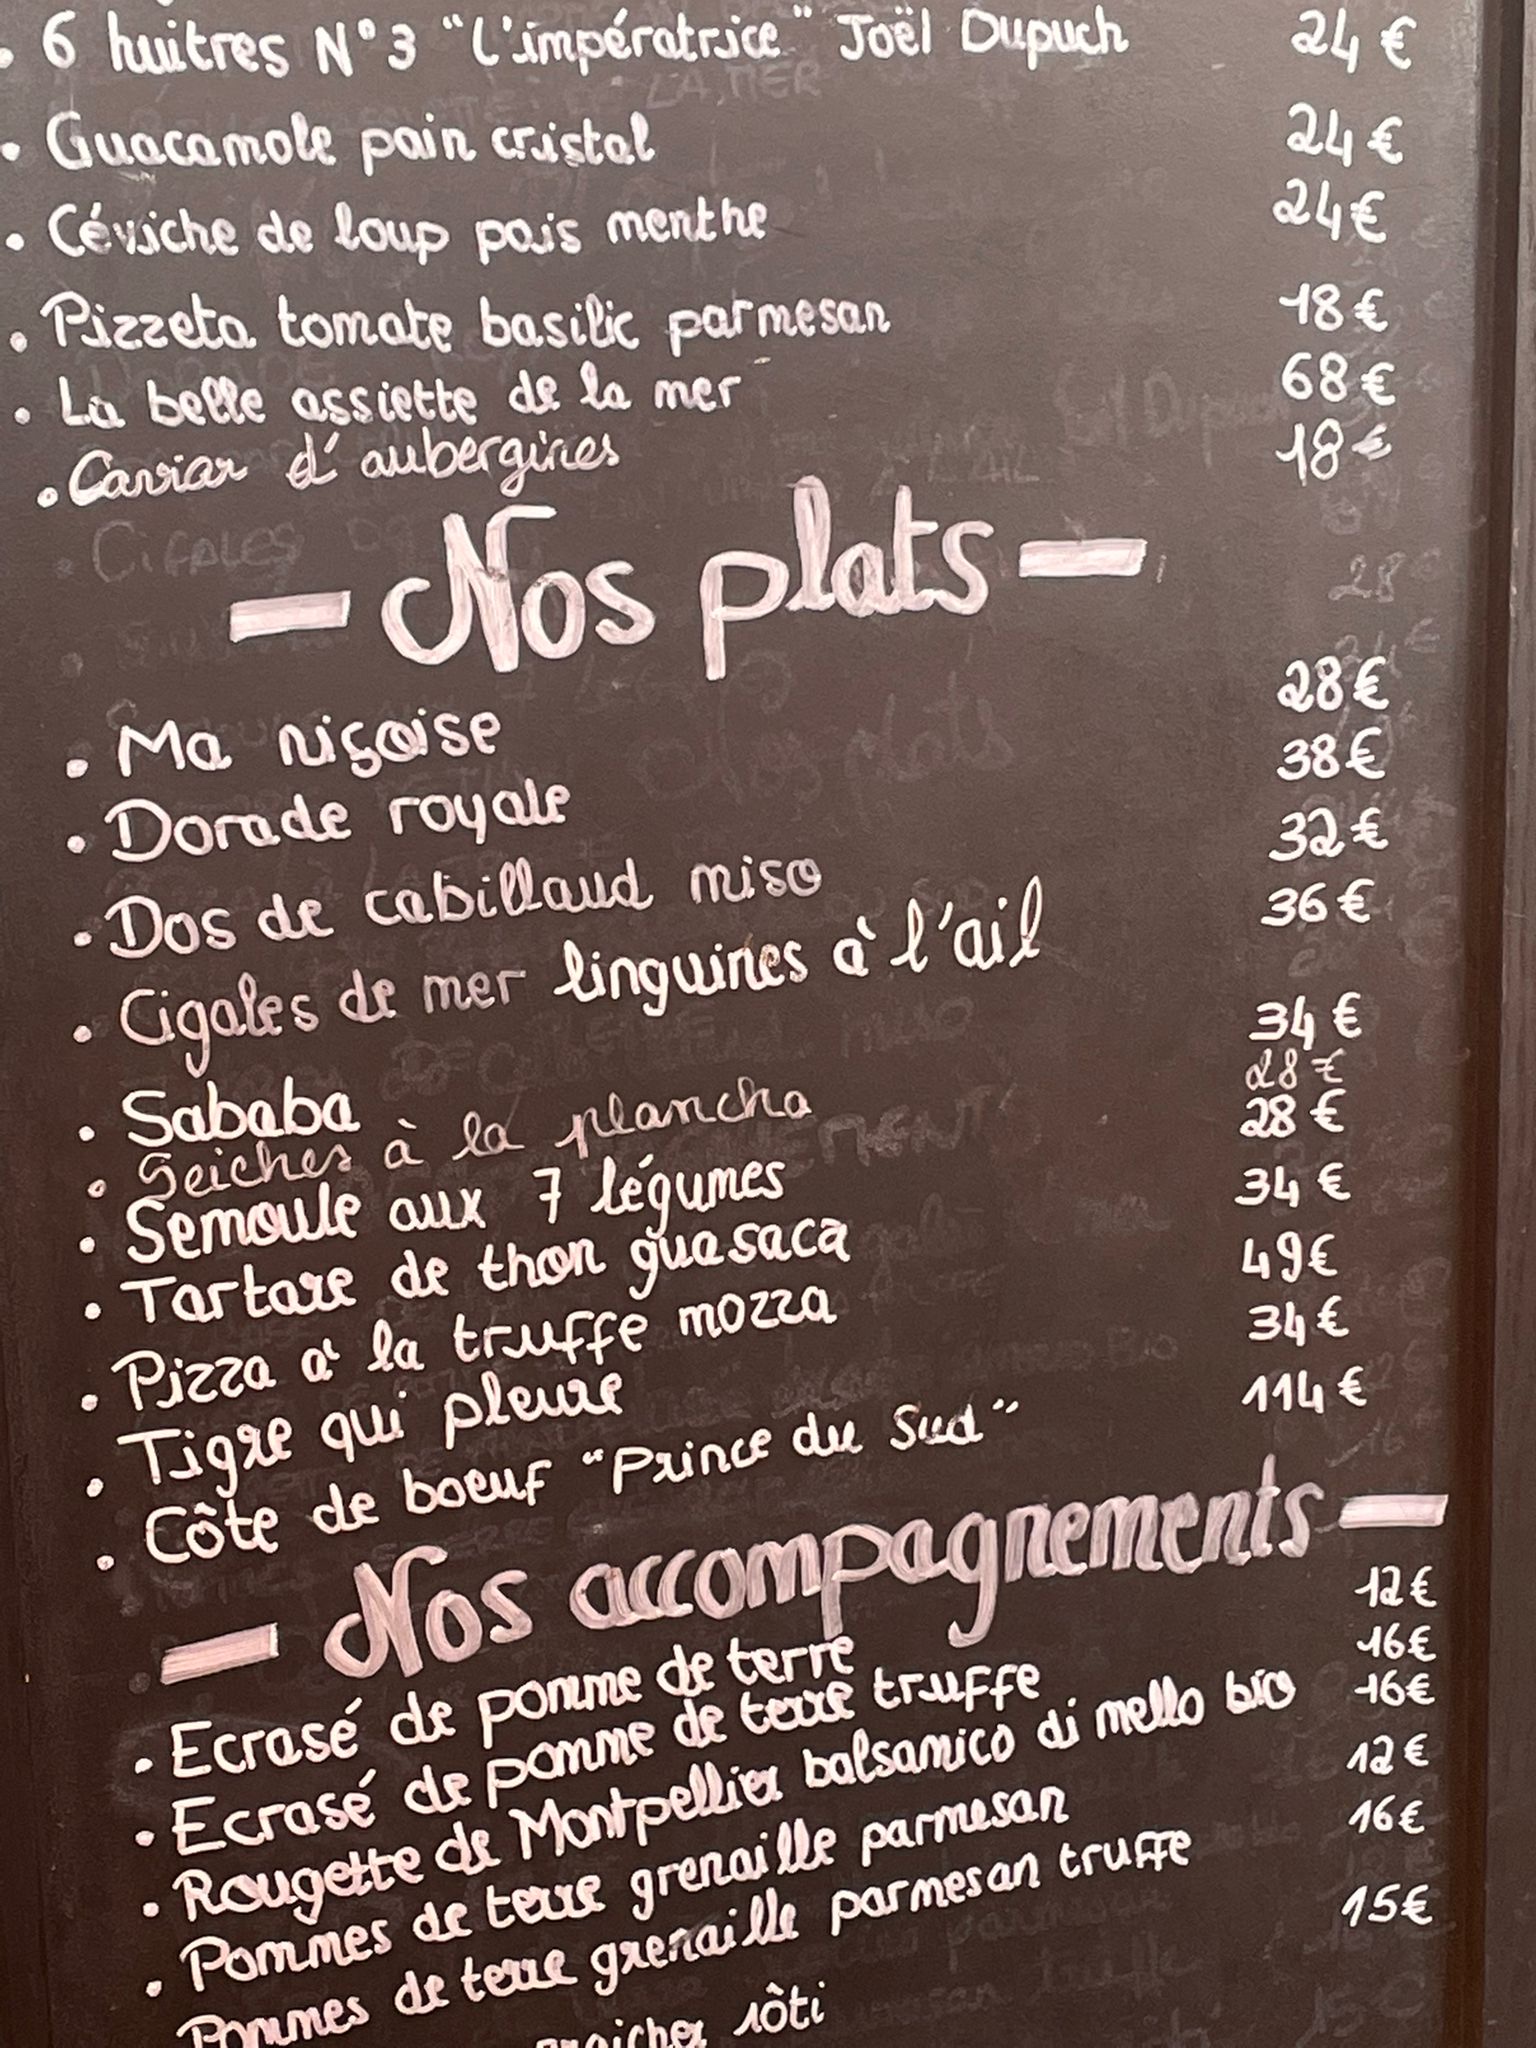 • 6 huitres N°3 "L'impératrice" Joël Dupuch 24€
• Guacamole pain cristal 24€
• Céviche de loup pois menthe 24€
• Pizzeta tomate basilic parmesan 18€
• La belle assiette de la mer 68€
• Caviar d'aubergines 18€
- Nos plats -
• Ma niçoise 28€
• Dorade royale 38€
• Dos de cabillaud miso 32€
• Cigales de mer linguines à l'ail 36€
• Sababa 34€
• Seiches à la plancha 28€
• Semoule aux 7 légumes 28€
• Tartare de thon guasaca 34€
• Pizza à la truffe mozza 49€
• Tigre qui pleure 34€
• Côte de boeuf "Prince du Sud" 114€
- Nos accompagnements -
• Ecrasé de pomme de terre 12€
• Ecrasé de pomme de terre truffe 16€
• Rougette de Montpellier balsamico di mello bio 16€
• Pommes de terre grenaille parmesan 12€
Pommes de terre grenaille parmesan truffe 16€
rôti 15€